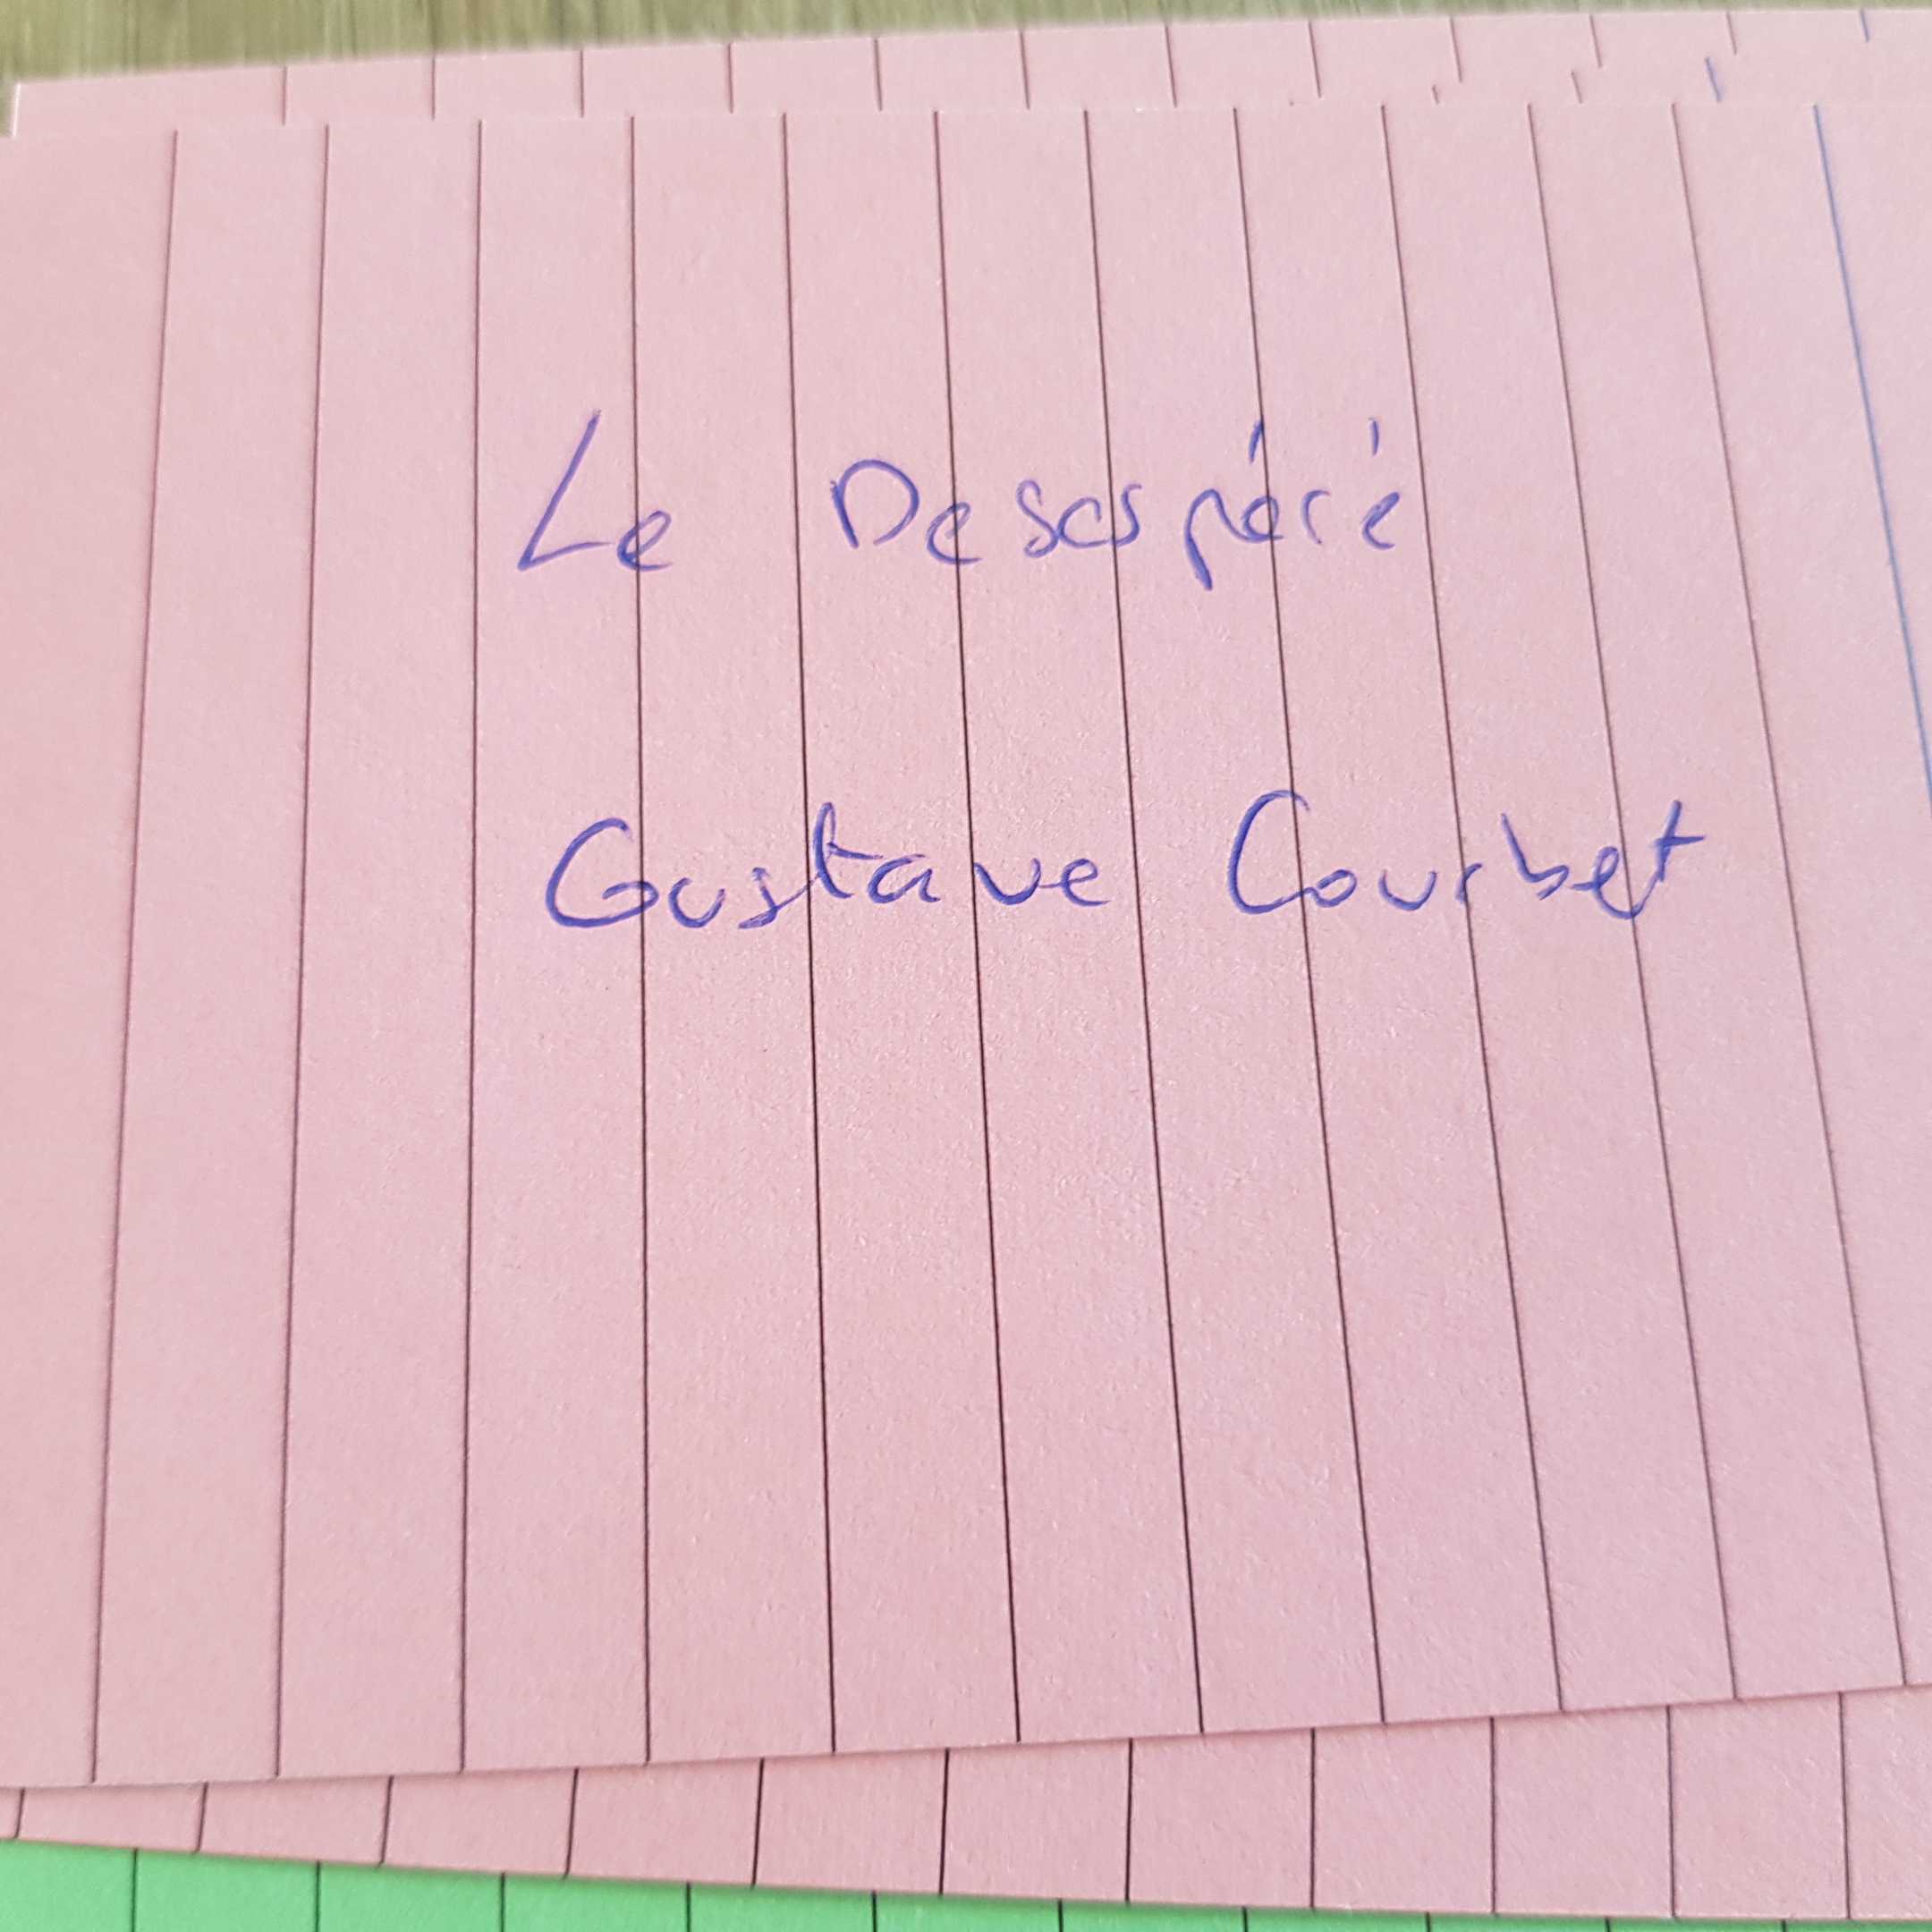 Le Desespéré
Gustave Courbet